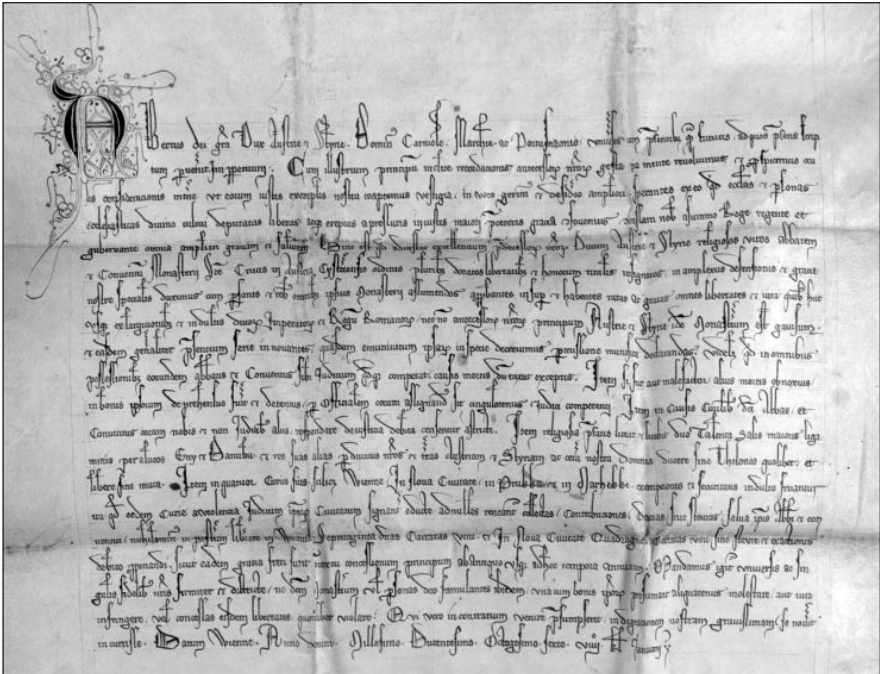 Albertus dei gra Dux Austrie et Styrie. Dominus Carniole. Marchie. ac Portusnaonis. vniuersis
tum puenerit. Imppetuum. Cum illustrium principum inclite recordacionis antecessor nror gesta pia mente reuoluimus et
consideracionis intime vt eorum iustis exemplis nostra coaptemus vestigia. in voto gerim et desiderio ampliori. sperantes ex eo qd ecclias et psonas
ecclesiasticas diuino cultui deputatas liberas atq ereptas a pressuris iniustis maiori gracia et fouemus. nob a summo Rege regente et
gubernante omnia ampliari graciam et salutem. Hinc est qd Ducum Austrie et Styrie religiosos viros abbatem
et Conuentum Monasterij Sce Crucis in Austria Cysterciensis ordinis pluribz donatos libertatibz et honorum titulis insignitos in amplexus defensionis et gracie
nostre specialis duximus cum psonis et rebz omnibz ipsius Monasterij assumendos. approbantes insup et habentes ratas ac gratas omnes libertates et iura quibz huc
vsq ex largicionibz et indultis diuor Impator et Regum Romanor. nec no antecessor nror principum Austrie et Styrie idem Monasterium est gauisum.
et easdem genaliter presencium serie innouantes. quasdem emunitatum ipsar in specie decreuimus pmissione munifica declarandas. videlicet qd in omnibus
possessionibz eorundem abbatis et Conuentus sibi Iudicium competat. causis mortis dumtaxat exceptis. Item si fur aut malefactor alius mortis obnoxius
in bonis ipsorum deprehensus fuerit et detentus. p Officialem eorum assignandus sit cingulotenus Iudici competenti. Item in Causis Ciuilibz dcus Abbas et
Conuentus coram nobis et non Iudicibz alijs respondere de iusticia debita censentur astricti. Item religiosis duo Talenta Salis maioris liga
minis per alueos Eny et Danubij. et res suas alias p ducatus nros et terras Austriam et Styriam ac cetera nostra dominia ducere sine Theloneo quolibet et
libere sine muta. Item in quatuor Curijs suis scilicet Wienne. In Noua Ciuitate. in Prukka. et in Marhekke. et securitatis indulto fruantur
ita qd eedem Curie a violencia Iudicum Ciuitatum sint educte ad nullas teneantur collectas. Contribuciones. Steuras. Abbti et con
uentui nichilominus in posterum libertate in Wienna Septuaginta duas Carratas vini. et In Noua Ciuitate Quadraginta Carratas vini sine steura et exactionis
debito. sicut eadem gracia freti sunt concessionum principum ab antiquo vsq ad hec tempora annuatim. Mandamus igitur vniuersis ac sin
gulis fidelibz nris firmiter et districte. ne dcm Monasterium vel psonas deo famulantes ibidem vna cum bonis ipsor presumant aliquatenus molestare. aut iura
infringere. vel concessas eisdem libertates quomodolibet violare. Qui vero in contrarium venire psumpserit indignacionem nostram grauissimam se nouerit
incurrisse. Datum Wienne. Anno domini. Millesimo. Ducentesimo. Octogesimo. Sexto. viij. kl. Ianuarij